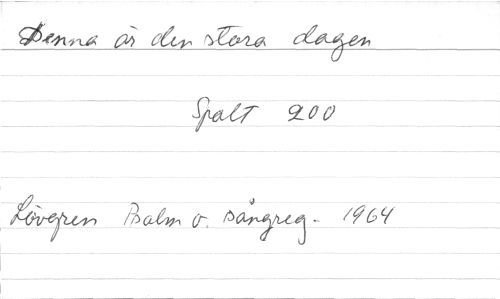 Denna är den stora dagen
Spalt 200
Lövgren Psalm o. sångreg. 1964